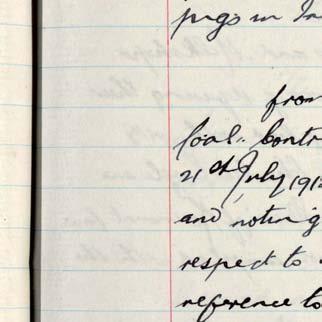 pigs in
from
Coal Contr
21st July 191
and noting
respect to
reference to